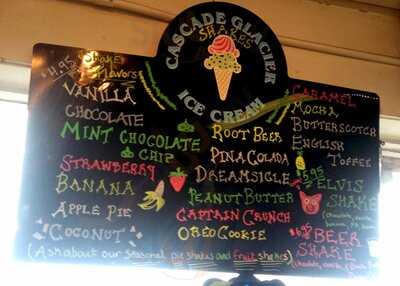 CASCADE GLACIER
SHAKES
ICE CREAM
4.95 Shake
Flavors
VANILLA
CHOCOLATE
MINT CHOCOLATE
CHIP
STRAWBERRY
BANANA
APPLE PIE
COCONUT
ROOT BEER
PINA COLADA
DREAMSICLE
PEANUT BUTTER
CAPTAIN CRUNCH
OREO COOKIE
CARAMEL
MOCHA
BUTTERSCOTCH
ENGLISH
TOFFEE
5.95
ELVIS
SHAKE
(chocolate,
BEER
SHAKE
(chocolate,
(Ask about our seasonal pie shakes and fruit shakes)